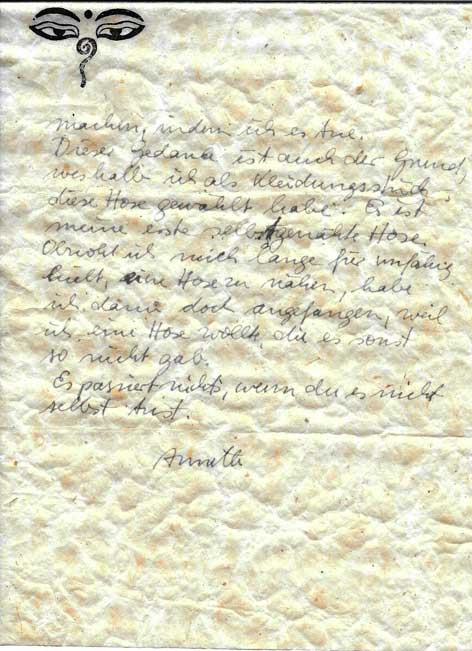 machen, indem ich es tue.
Dieser Gedanke ist auch der Grund,
weshalb ich als Kleidungsstück
diese Hose gewählt habe. Es ist
meine erste selbstgenähte Hose.
Obwohl ich mich lange für unfähig
hielt, eine Hose zu nähen, habe
ich damit doch angefangen, weil
ich eine Hose wollte, die es sonst
so nicht gab.
Es passiert nichts, wenn du es nicht
selbst tust.
Annette